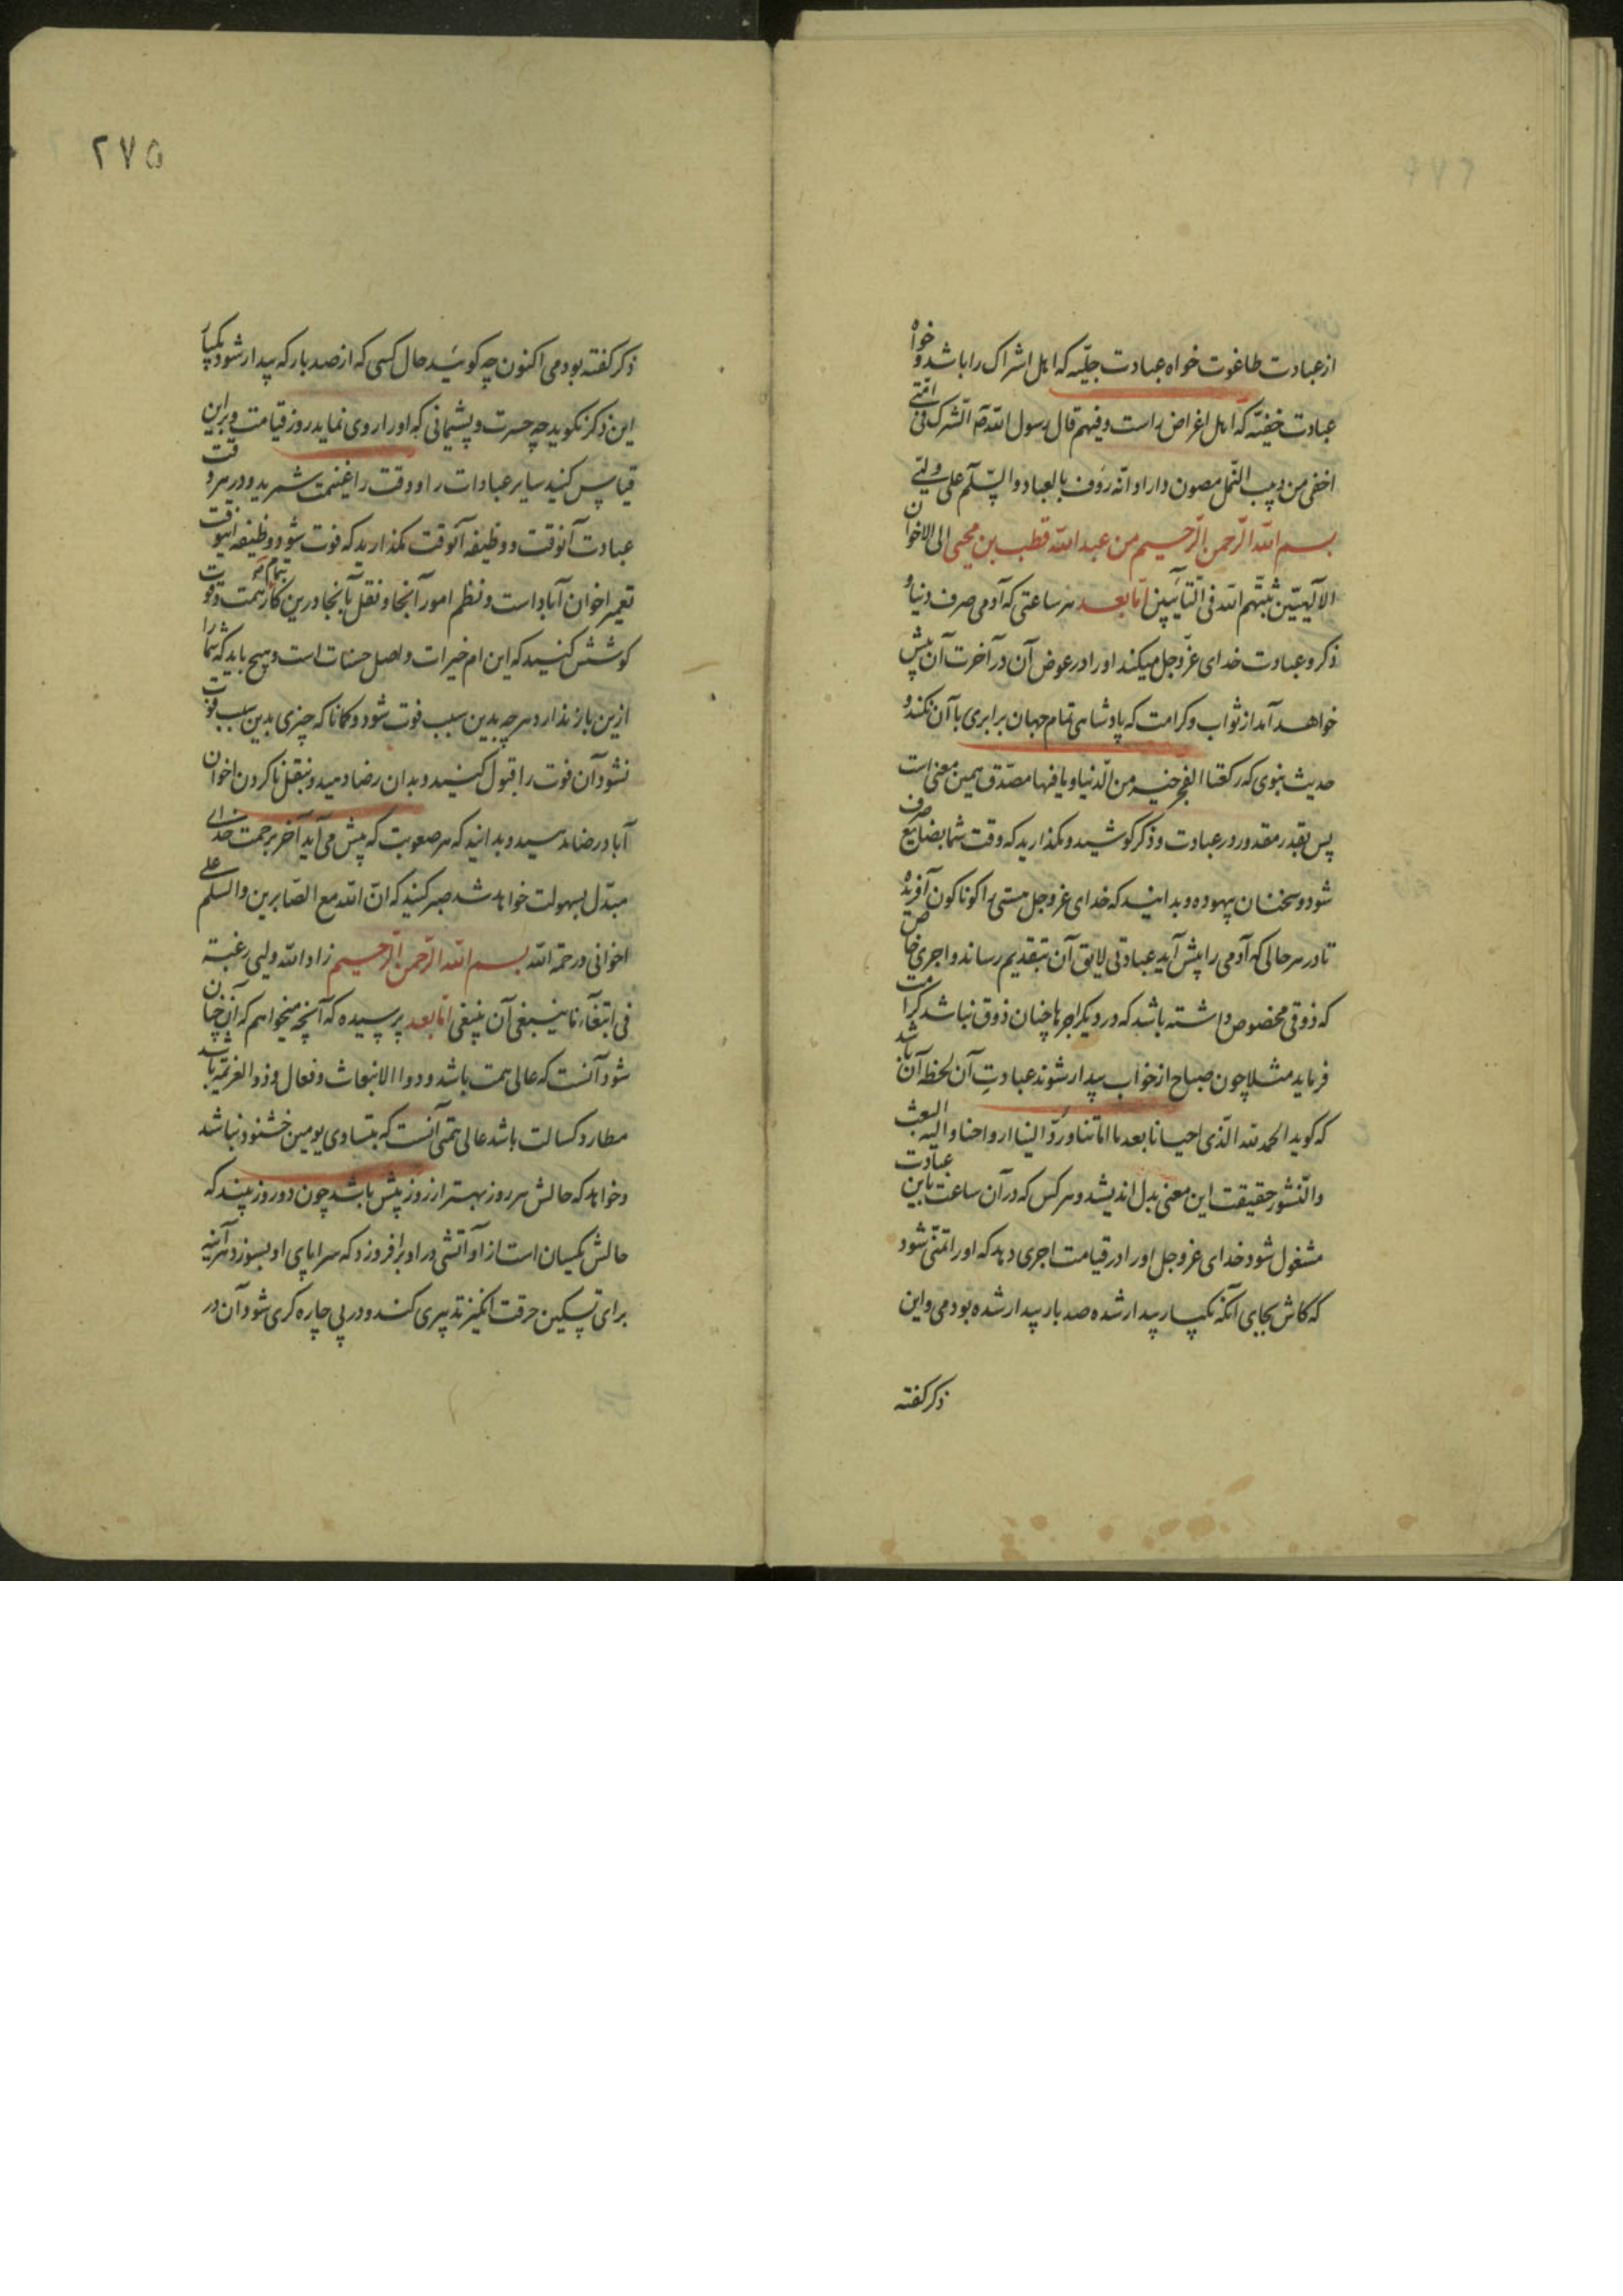 از عبادت طاغوت خواه عبادت جلیّه که اهل اشراک را باشد و خواه
عبادت خفیّه که اهل اغراض راست و فیهم قال رسول الله صه الشرک فی امّتی
اخفی من دبیب النّمل مصون داراد انّه رؤف بالعباد والسّلم علی ولیّی
بسم الله الرّحمن الرّحیم من عبد الله قطب بن محیی الی الاخوان
الالٓهیّین ثبّتهم الله فی امّا بعد هر ساعتی که آدمی صرف دنیا و
ذکر و عبادت خدای عزّ و جل میکند او را در عوض آن در آخرت آن پیش
خواهد آمد از ثواب و کرامت که پادشاهی تمام جهان برابری با آن نکند و
حدیث نبوی که رکعتا الفجر خیر من الدّنیا و ما فیها مصدّق همین معنی است
پس بقدر مقدور در عبادت و ذکر کوشید و مکذارید که وقت شما بضایع صرف
شود و سخنان بیهوده و بدانید که خدای عز و جل هستی را کوناکون آفریده
تا در هر حالی که آدمی را پیش آید عبادتی لایق آن بتقدیم رساند و اجری خاص
که ذوقی مخصوص داشته باشد که در دیکر اجرها چنان ذوق نباشد کرامت
فرماید مثلا چون صباح از خواب بیدار شوند عبادتِ آن لحظه آن باشد
که کوید الحمد لله الّذی احیانا بعد ما اماتنا و ردّ الینا ارواحنا و الیه البعث
والنّشور حقیقت این معنی بدل اندیشد و هر کس که در آن ساعت باین عبادت
مشغول شود خدای عز و جل او را در قیامت اجری دهد که او را تمنّی شود
که کاش بجای آنکه یکبار بیدار شده صد بار بیدار شده بودمی و این
ذکر کفته
۲۷۵
ذکر کفته بودمی اکنون چه کوئید حال کسی که از صد بار که بیدار شود یکبار
این ذکر نکوید چه حسرت و پشیمانی که او را روی نماید روز قیامت و براین
قیاس کنید سایر عبادات را و وقت را غنیمت شمرید و در هر وقت
عبادت آنوقت و وظیفه آنوقت مکذارید که فوت شود و وظیفه اینوقت
تعمیر اخوان آباد است و نظم امور آنجا و نقل بآنجا درین کار بتمام همت و قوت
کوشش کنید که این ام خیرات و اصل حسنات است و هیچ باید که شما را
ازین باز ندارد هر چه بدین سبب فوت شود و کانا که چیزی بدین سبب فوت
نشود آن فوت را قبول کنید و بدان رضا دهید و بنقل نا کردن اخوان
آباد رضا مدهید و بدانید که هر صعوبت که پیش می آید آخر برحمت خدای
مبدّل بسهولت خواهد شد صبر کنید که انّ الله مع الصّابرین والسلم علی
اخوانی و رحمة الله بسم الله الرّحمن الرّحیم زاد الله ولیی رغبة
فی ابتغاء ما ینبغی آن یبتغی امّا بعد پرسیده که آنچه میخواهم که آن چنان
شود آنست که عالی همت باشد و دوا الانبعاث و فعال و ذو العزیمه باشد
مطارد کسالت باشد عالی همّتی آنست که بتساوی یومین خشنود نباشد
و خواهد که حالش هر روز بهتر از روز پیش باشد چون دو روز بیند که
حالش یکسان است از آو آتشی در او برافروزد که سراپای او بسوزد هرآینه
برای تسکین حرقت انگیز تدبیری کند و در پی چاره کری شود آن در